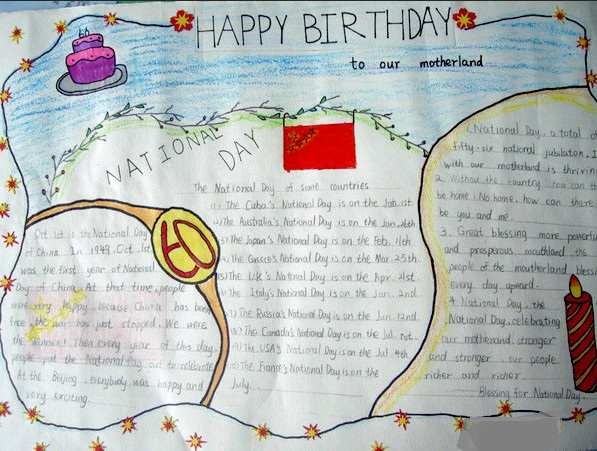 60
HAPPY BIRTHDAY
to our motherland
NATIONAL DAY
The National Day of some countries
The Cuba's National Day is on the Jan. 1st
The Australia's National Day is on the Jan. 26th
The Japan's National Day is on the Feb. 11th
The Greece's National Day is on the Mar. 25th
The UK's National Day is on the Apr. 21st
The Italy's National Day is on the Jun. 2nd
The Russia's National Day is on the Jun. 12nd
The Canada's National Day is on the Jul. 1st
The USA's National Day is on the Jul. 4th
The France's National Day is on the
July
60
Oct. 1st is the National Day
of China. In 1949. Oct. 1st
was the first year of National
Day of China. At that time, people
were very happy, because China has been
free, the war has just stopped. We were
the Then every year of this day,
people put the National flag out to celebrate
At the Beijing, everybody was happy and
very exciting.
1. National Day, a total of
fifty-six national jubilation. I
with our motherland is thriving
2. Without the country, how can th
be home? No home, how can there
be you and me
3. Great blessing more powerful
and prosperous the
people of the motherland blessi
every day upward.
4. National Day, the
National Day, celebrating
our motherland, stronger
and stronger, our people
richer and richer
Blessing for National Day